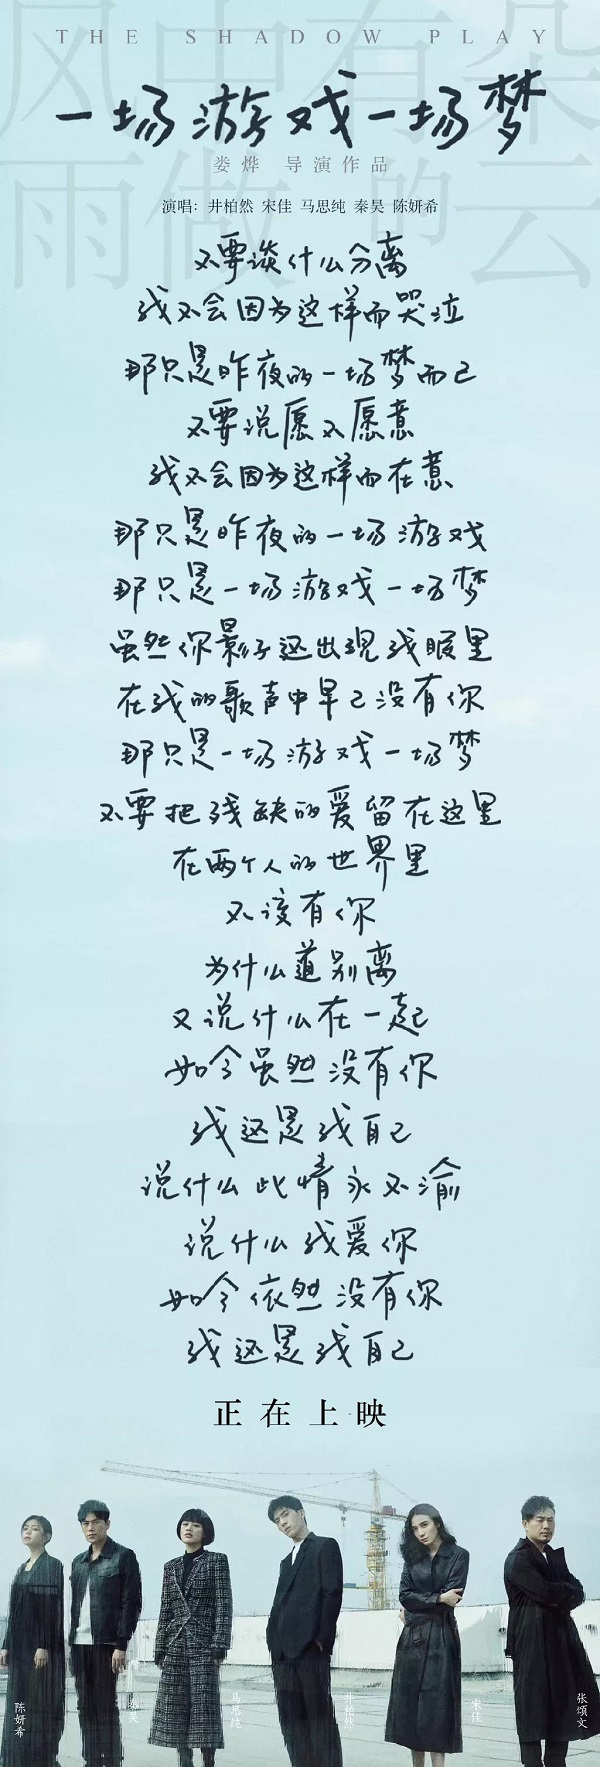 THE SHADOW PLAY
风中有朵
雨做的云
一场游戏一场梦
娄烨 导演作品
演唱：井柏然 宋佳 马思纯 秦昊 陈妍希
不要谈什么分离
我不会因为这样而哭泣
那只是昨夜的一场梦而已
不要说愿不愿意
我不会因为这样而在意
那只是昨夜的一场游戏
那只是一场游戏一场梦
虽然你影子还出现我眼里
在我的歌声中早已没有你
那只是一场游戏一场梦
不要把残缺的爱留在这里
在两个人的世界里
不该有你
为什么道别离
又说什么在一起
如今虽然没有你
我还是我自己
说什么此情永不渝
说什么我爱你
如今依然没有你
我还是我自己
正在上映
陈妍希
秦昊
马思纯
井柏然
宋佳
张颂文